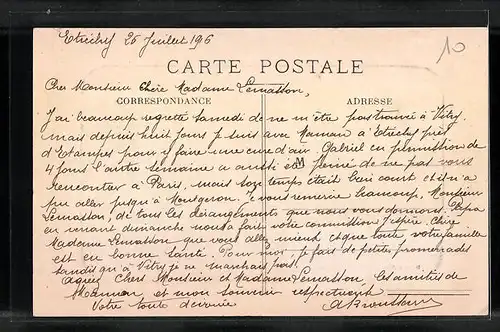 Etrechy 25 Juillet 1916
10
CARTE POSTALE
Cher Monsieur Chère Madame Lemasson,
CORRESPONDANCE
ADRESSE
J'ai beaucoup regretté samedi de ne m'être pas trouvée à Vitry,
mais depuis huit jours je suis avec Maman à Etrechy près
d'Etampes pour y faire une cure d'air. Gabriel en permission de
4 jours l'autre semaine a aussi été peiné de ne pas vous
rencontrer à Paris, mais son temps était bien court et il n'a
pu aller jusqu'à Montgeron. Je vous remercie beaucoup, Monsieur
Lemasson, de tous les dérangements que nous vous donnons. Papa
en venant dimanche nous a fait votre commission. J'espère Chère
Madame Lemasson que vous allez mieux et que toute votre famille
est en bonne santé. Pour moi, je fais de petites promenades
tandis qu'à Vitry je ne marchais pas.
Agréez Chers Monsieur et Madame Lemasson, les amitiés de
Maman et mon souvenir respectueux
Votre toute dévouée
M